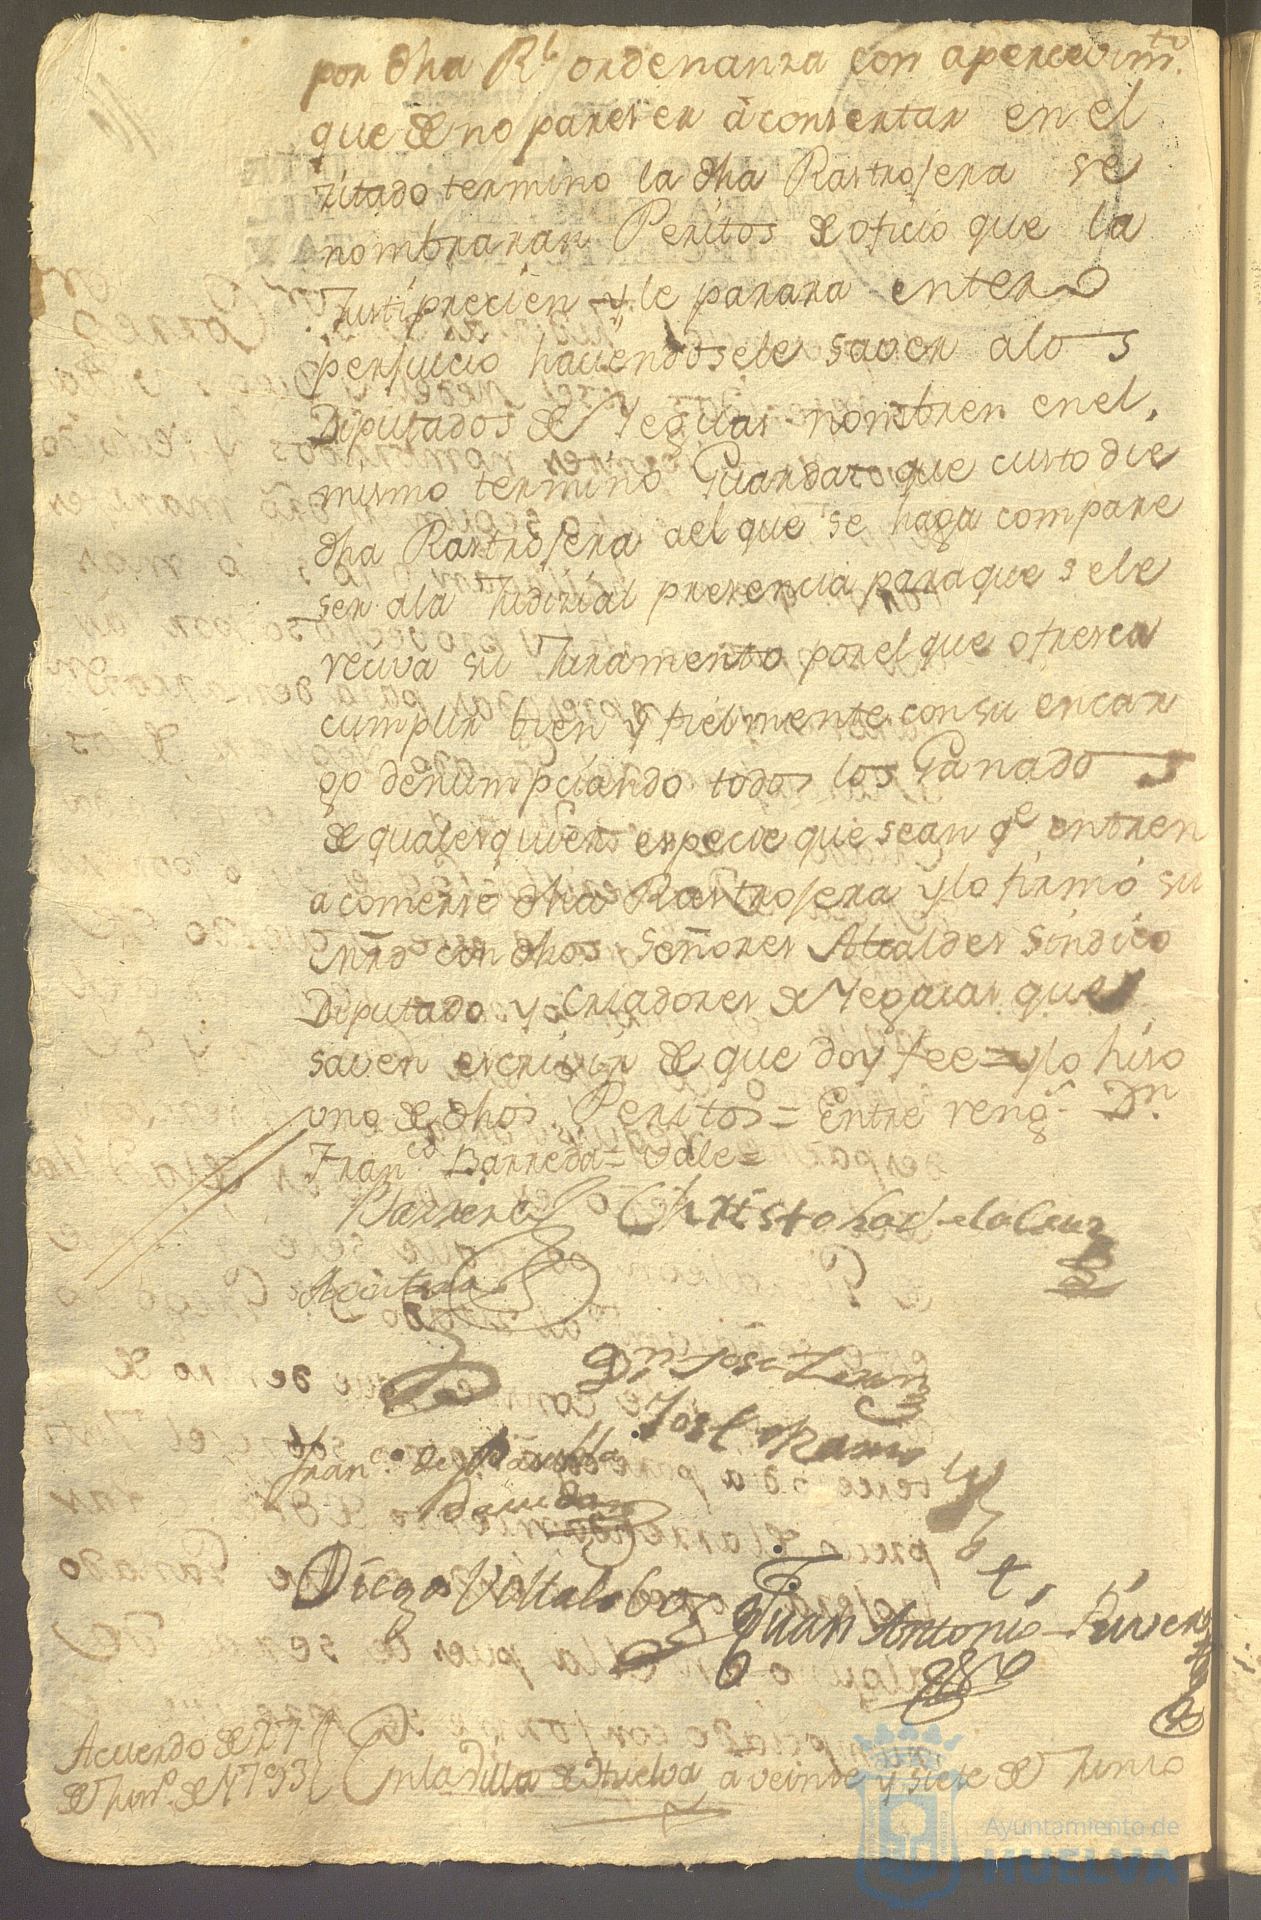 por dha Rl ordenanza con apercevimto.
que de no pareser á consertar en el
zitado termino la dha Rastrojera se
nombraran Peritos de oficio que la
Justiprecien y le parara entero
perjuicio haciendosele saver alos
Diputados de Yeguas nombren en el
mismo termino Guarda que custodie
dha Rastrojera ael que se haga compare
ser ala Judizial presencia para que sele
reciva su Juramento por el que ofresca
cumplir bien y fielmente con su encar
go denumpciando todos los Ganados
de qualesquiera especie que sean qe entren
a comerse dha Rastrojera y lo firmó su
con dhos Señores Alcaldes Sindico
Diputado y Criadores de Yeguas que
saven escrivir de que doy fee = y lo hiso
uno de dhos Peritos = Entre reng.s Dn.
Franco Barreda = Vale =
Barreda Christobal de la Cruz
Dn Jose
Jose Ramos
Franco. de
Diego Villalobos Juan Antonio Rivera
Acuerdo de 27
de Juno. de 1793
En la Villa de Huelva a veinte y siete de Junio
Ayuntamiento de
HUELVA